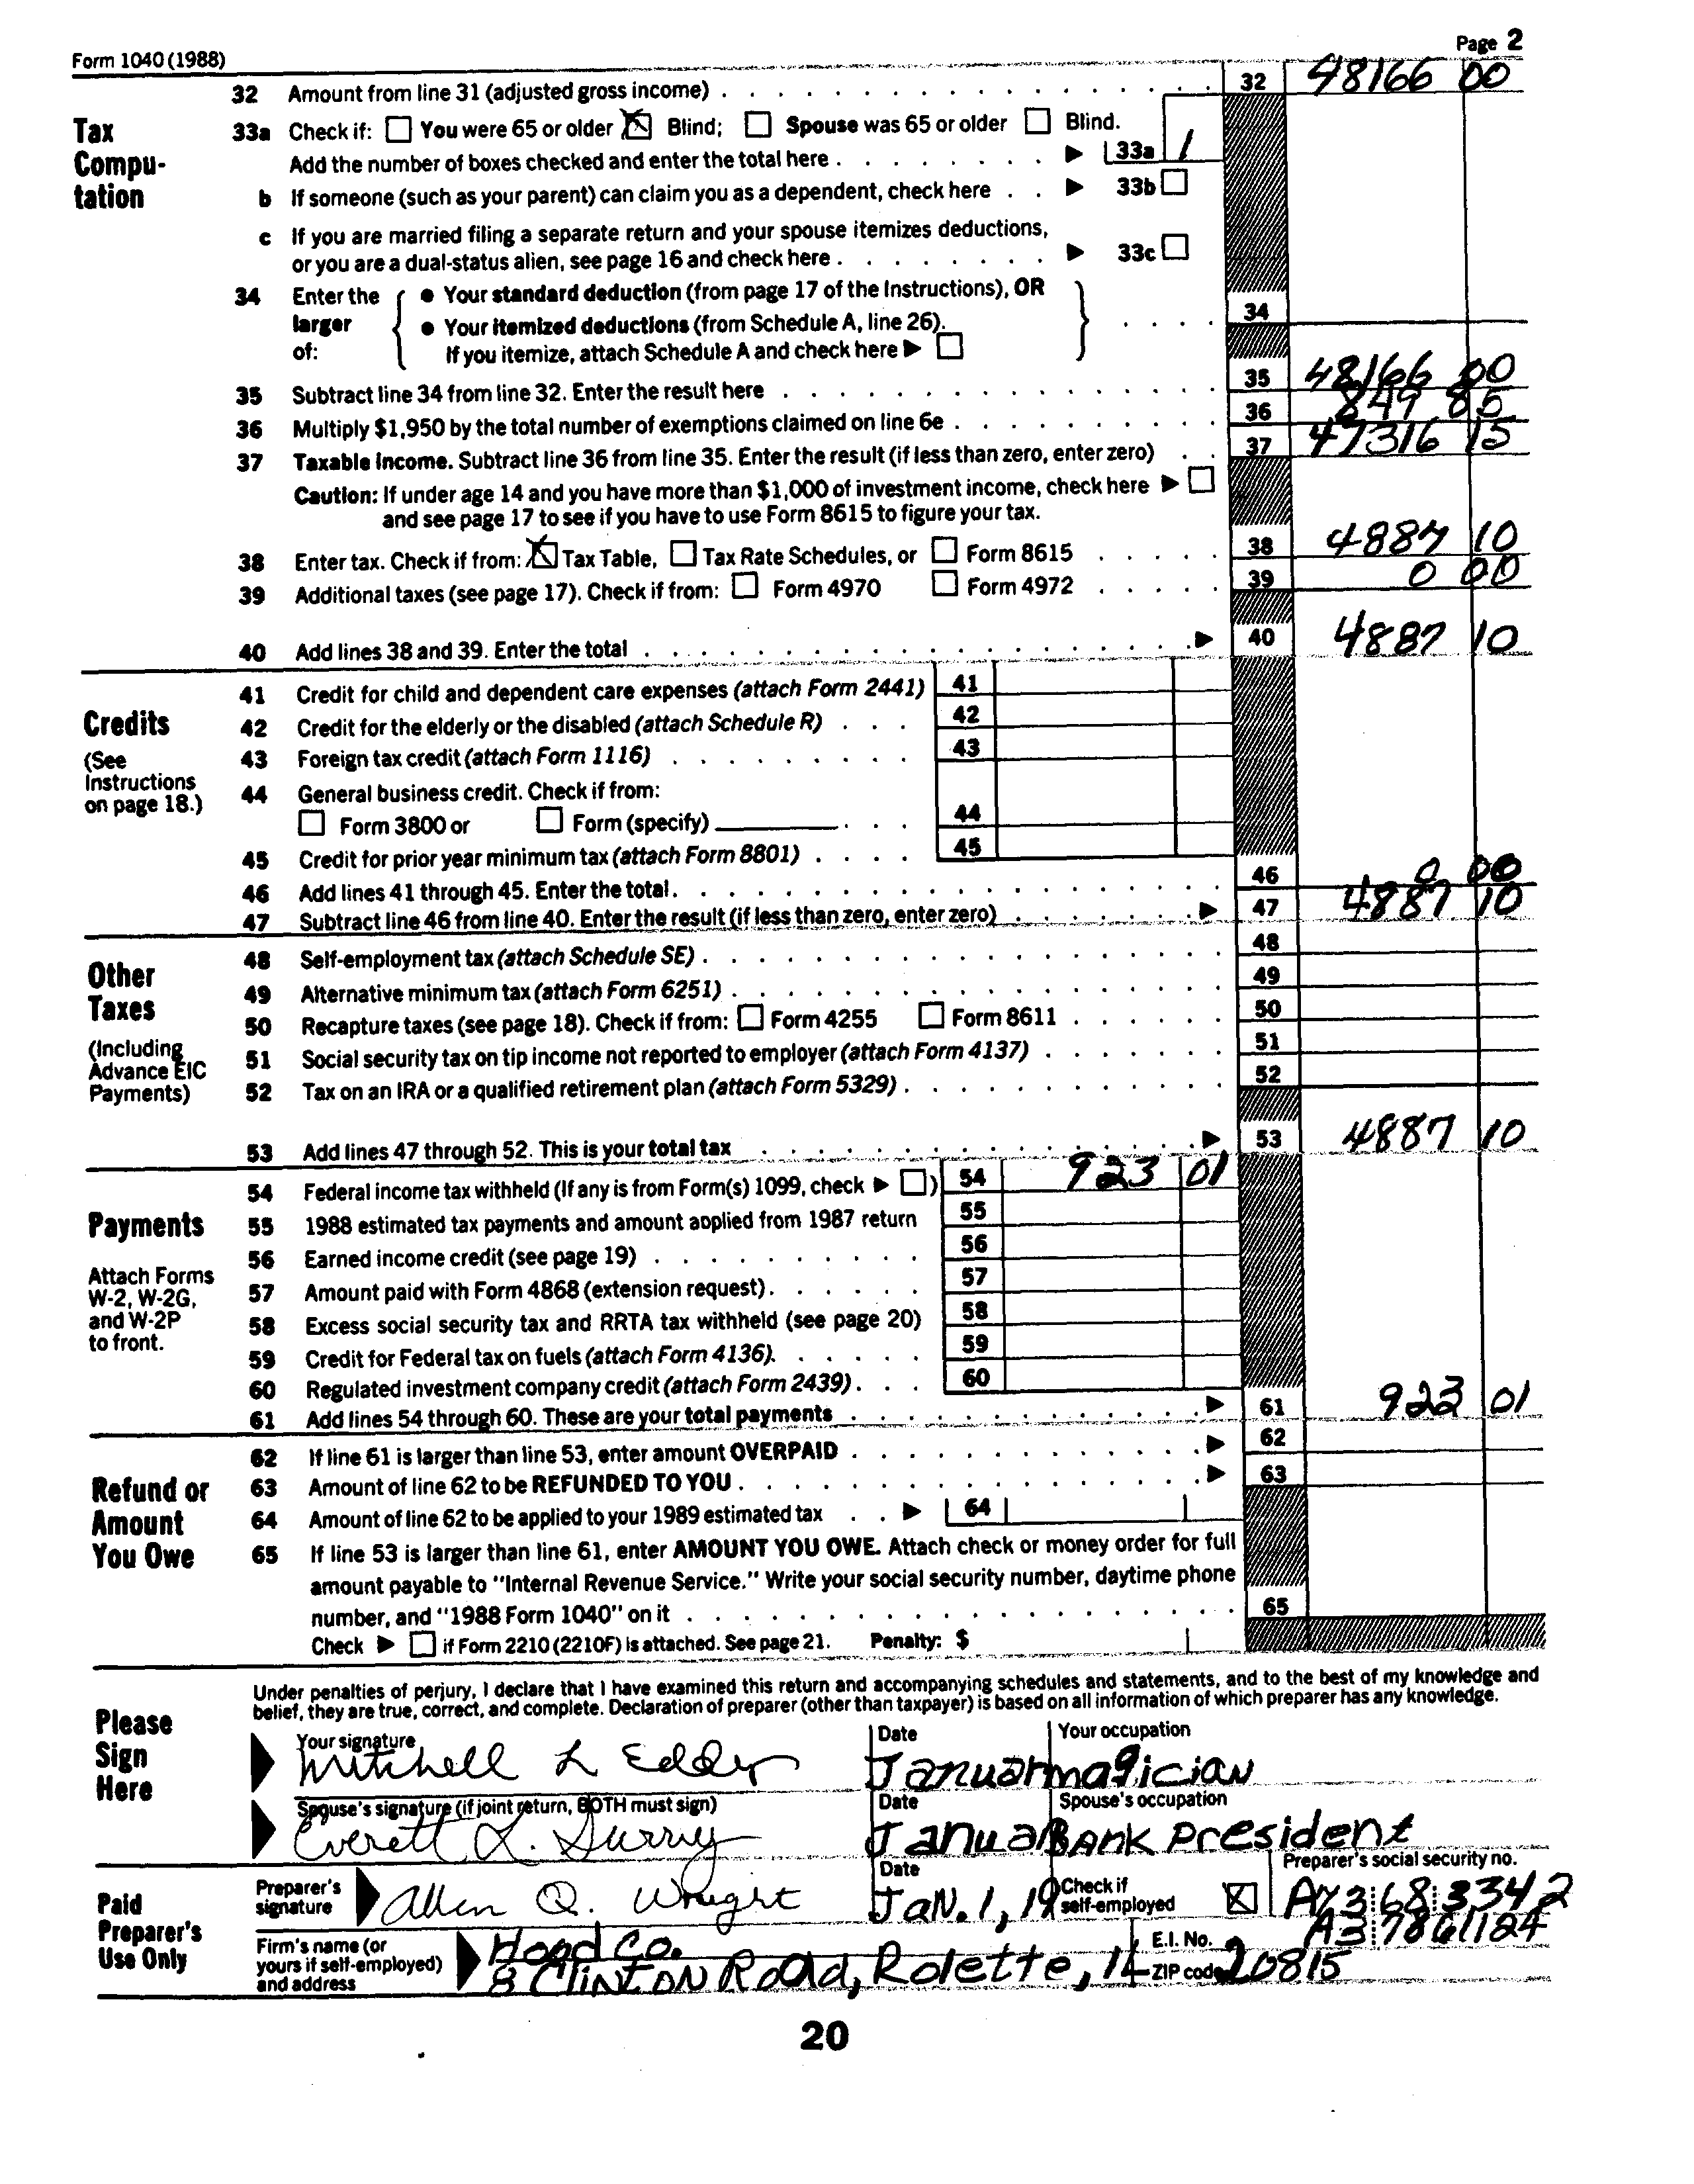 Form 1040 (1988)
Page 2
32 Amount from line 31 (adjusted gross income) 32 48166 00
Tax Compu-tation
33a Check if: You were 65 or older Blind; Spouse was 65 or older Blind.
Add the number of boxes checked and enter the total here 33a 1
b If someone (such as your parent) can claim you as a dependent, check here 33b
c If you are married filing a separate return and your spouse itemizes deductions,
or you are a dual-status alien, see page 16 and check here 33c
34 Enter the larger of:
• Your standard deduction (from page 17 of the Instructions), OR
• Your itemized deductions (from Schedule A, line 26).
If you itemize, attach Schedule A and check here
34
35 Subtract line 34 from line 32. Enter the result here 35 48166 00
36 Multiply $1,950 by the total number of exemptions claimed on line 6e 36 849 85
37 Taxable income. Subtract line 36 from line 35. Enter the result (if less than zero, enter zero) 37 47316 15
Caution: If under age 14 and you have more than $1,000 of investment income, check here
and see page 17 to see if you have to use Form 8615 to figure your tax.
38 Enter tax. Check if from: Tax Table, Tax Rate Schedules, or Form 8615 38 4887 10
39 Additional taxes (see page 17). Check if from: Form 4970 Form 4972 39 0 00
40 Add lines 38 and 39. Enter the total 40 4887 10
Credits
(See Instructions on page 18.)
41 Credit for child and dependent care expenses (attach Form 2441) 41
42 Credit for the elderly or the disabled (attach Schedule R) 42
43 Foreign tax credit (attach Form 1116) 43
44 General business credit. Check if from:
Form 3800 or Form (specify) 44
45 Credit for prior year minimum tax (attach Form 8801) 45
46 Add lines 41 through 45. Enter the total. 46 0 00
47 Subtract line 46 from line 40. Enter the result (if less than zero, enter zero) 47 4887 10
Other Taxes
(Including Advance EIC Payments)
48 Self-employment tax (attach Schedule SE) 48
49 Alternative minimum tax (attach Form 6251) 49
50 Recapture taxes (see page 18). Check if from: Form 4255 Form 8611 50
51 Social security tax on tip income not reported to employer (attach Form 4137) 51
52 Tax on an IRA or a qualified retirement plan (attach Form 5329) 52
53 Add lines 47 through 52. This is your total tax 53 4887 10
Payments
Attach Forms W-2, W-2G, and W-2P to front.
54 Federal income tax withheld (If any is from Form(s) 1099, check ) 54 923 01
55 1988 estimated tax payments and amount applied from 1987 return 55
56 Earned income credit (see page 19) 56
57 Amount paid with Form 4868 (extension request) 57
58 Excess social security tax and RRTA tax withheld (see page 20) 58
59 Credit for Federal tax on fuels (attach Form 4136). 59
60 Regulated investment company credit (attach Form 2439) 60
61 Add lines 54 through 60. These are your total payments 61 923 01
Refund or Amount You Owe
62 If line 61 is larger than line 53, enter amount OVERPAID 62
63 Amount of line 62 to be REFUNDED TO YOU 63
64 Amount of line 62 to be applied to your 1989 estimated tax 64
65 If line 53 is larger than line 61, enter AMOUNT YOU OWE. Attach check or money order for full
amount payable to "Internal Revenue Service." Write your social security number, daytime phone
number, and "1988 Form 1040" on it 65
Check if Form 2210 (2210F) is attached. See page 21. Penalty: $
Please Sign Here
Under penalties of perjury, I declare that I have examined this return and accompanying schedules and statements, and to the best of my knowledge and
belief, they are true, correct, and complete. Declaration of preparer (other than taxpayer) is based on all information of which preparer has any knowledge.
Your signature Date Your occupation
Mitchell L Eddy Januar magician
Spouse's signature (if joint return, BOTH must sign) Date Spouse's occupation
Everett L. Surry Janua Bank President
Paid Preparer's Use Only
Preparer's signature Date Check if self-employed Preparer's social security no.
Allen Q. Wright Jan. 1, 19 X
Firm's name (or yours if self-employed) and address
Hood Co.
8 Clinton Road, Rolette, IL
E.I. No. A37861124
ZIP code 20815
20